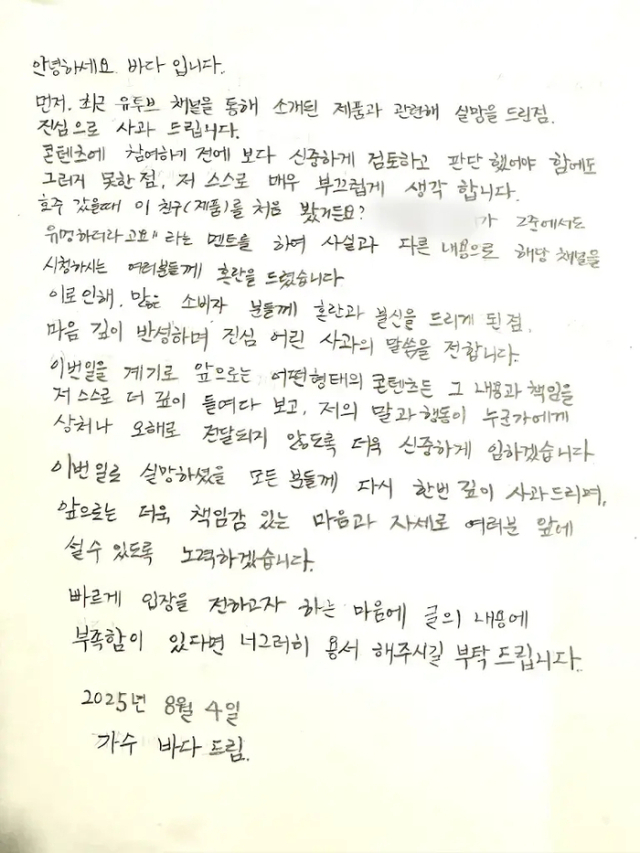 안녕하세요. 바다 입니다.
먼저, 최근 유투브 채널을 통해 소개된 제품과 관련해 실망을 드린점,
진심으로 사과 드립니다.
콘텐츠에 참여하기 전에 보다 신중하게 검토하고 판단 했어야 함에도
그러지 못한 점, 저 스스로 매우 부끄럽게 생각 합니다.
호주 갔을때 이 친구(제품)를 처음 봤거든요?
가 그준에서도
유명하더라고요" 라는 멘트를 하여 사실과 다른 내용으로 해당 채널을
시청하시는 여러분들께 혼란을 드렸습니다
이로 인해, 많은 소비자 분들께 혼란과 불신을 드리게 된 점,
마음 깊이 반성하며 진심 어린 사과의 말씀을 전합니다.
이번일을 계기로 앞으로는 어떤형태의 콘텐츠든 그 내용과 책임을
저 스스로 더 깊이 들여다 보고, 저의 말과 행동이 누군가에게
상처나 오해로 전달되지 않도록 더욱 신중하게 임하겠습니다
이번 일로 실망하셨을 모든 분들께 다시 한번 깊이 사과드리며,
앞으로는 더욱 책임감 있는 마음과 자세로 여러분 앞에
설 수 있도록 노력하겠습니다.
빠르게 입장을 전하고자 하는 마음에 글의 내용에
부족함이 있다면 너그러히 용서 해주시길 부탁 드립니다.
2025년 8월 4일
가수 바다 드림.